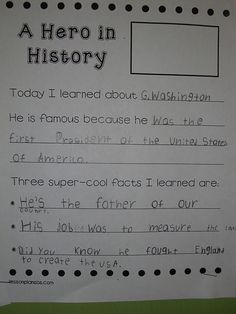 A Hero in
History
Today I learned about G.Washington
He is famous because he was the
first President of the United States
of America.
Three super-cool facts I learned are:
• He's the father of our
count.
• His Job was to measure the
• Did you know he fought England
to create the USA.